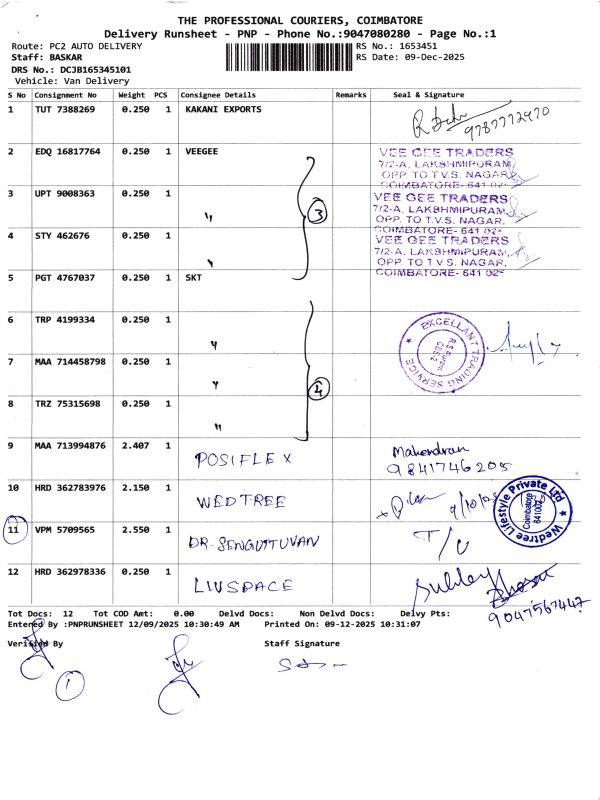 THE PROFESSIONAL COURIERS, COIMBATORE
Delivery Runsheet - PNP - Phone No.:9047080280 - Page No.:1
Route: PC2 AUTO DELIVERY RS No.: 1653451
Staff: BASKAR RS Date: 09-Dec-2025
DRS No.: DCJB165345101
Vehicle: Van Delivery
S No Consignment No Weight PCS Consignee Details Remarks Seal & Signature
1 TUT 7388269 0.250 1 KAKANI EXPORTS
9787772970
2 EDQ 16817764 0.250 1 VEEGEE
VEE GEE TRADERS
7/2-A, LAKSHMIPURAM,
OPP. TO T.V.S. NAGAR,
COIMBATORE- 641 025
3 UPT 9008363 0.250 1 "
VEE GEE TRADERS
7/2-A, LAKSHMIPURAM,
OPP. TO T.V.S. NAGAR,
COIMBATORE- 641 025
3
4 STY 462676 0.250 1 "
VEE GEE TRADERS
7/2-A, LAKSHMIPURAM,
OPP. TO T.V.S. NAGAR,
COIMBATORE- 641 025
5 PGT 4767037 0.250 1 SKT
6 TRP 4199334 0.250 1 "
EXCELLANT TRADING SERVICE
7 MAA 714458798 0.250 1 "
4
8 TRZ 75315698 0.250 1 "
9 MAA 713994876 2.407 1 POSIFLEX
Mahendran
9841746205
10 HRD 362783976 2.150 1 WEDTREE
Wedtree Lifestyle Private Ltd
Coimbatore
11 VPM 5709565 2.550 1 DR.SENGUTTUVAN T/C
12 HRD 362978336 0.250 1 LIVSPACE
9047567447
Tot Docs: 12 Tot COD Amt: 0.00 Delvd Docs: Non Delvd Docs: Delvy Pts:
Entered By :PNPRUNSHEET 12/09/2025 10:30:49 AM Printed On: 09-12-2025 10:31:07
Verified By Staff Signature
1